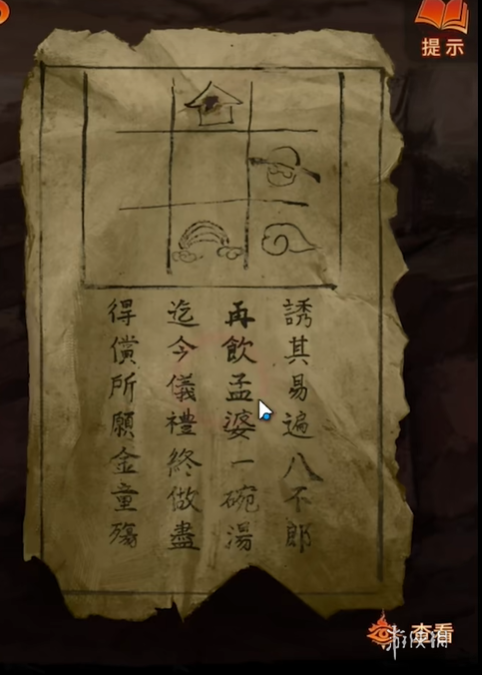 提示
誘其易遍八不郎
再飲孟婆一碗湯
迄今儀禮終做盡
得償所願金童殤
查看